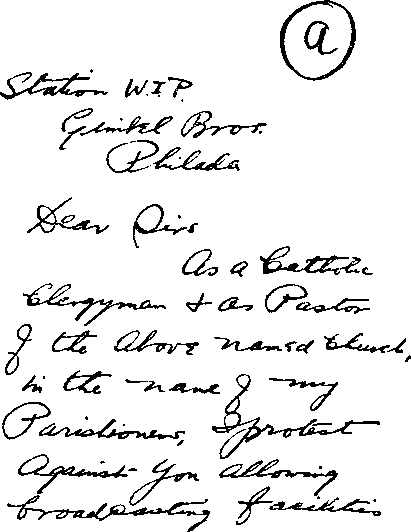 a
Station W.I.P.
Gimbel Bros.
Philada
Dear Sirs
As a Catholic
Clergyman & as Pastor
of the above named Church,
in the name of my
Parishioners, I protest
against you allowing
broadcasting facilities